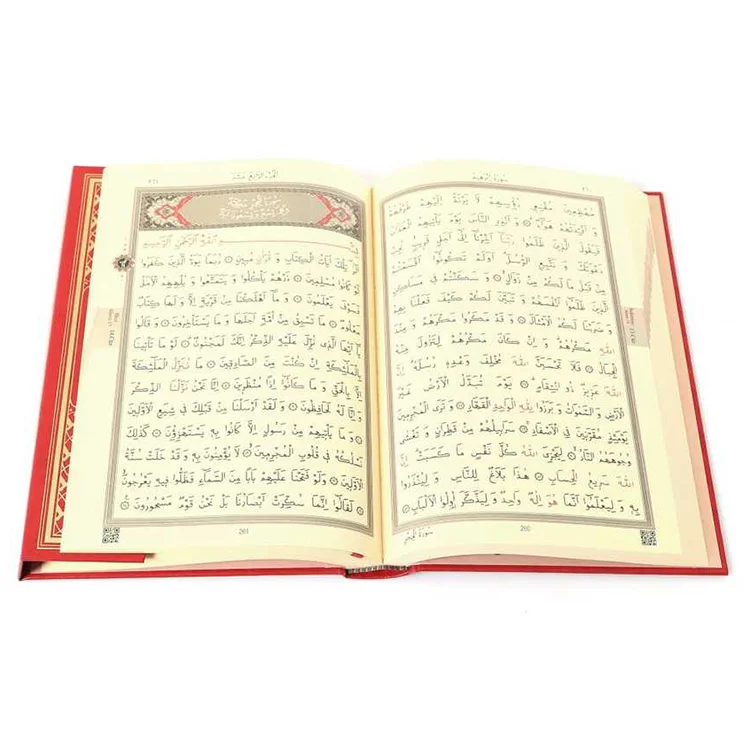 ٢٦٠
سُورَةُ اِبْرٰهِيمَ
مُهْطِعِينَ مُقْنِعِي رُؤُسِهِمْ لَا يَرْتَدُّ اِلَيْهِمْ طَرْفُهُمْ
وَاَفْئِدَتُهُمْ هَوَاءٌ ۞ وَاَنْذِرِ النَّاسَ يَوْمَ يَأْتِيهِمُ الْعَذَابُ
فَيَقُولُ الَّذِينَ ظَلَمُوا رَبَّنَا اَخِّرْنَا اِلٰى اَجَلٍ قَرِيبٍ نُجِبْ
دَعْوَتَكَ وَ نَتَّبِعِ الرُّسُلَ اَوَلَمْ تَكُونُوا اَقْسَمْتُمْ
مِنْ قَبْلُ مَا لَكُمْ مِنْ زَوَالٍ ۞ وَ سَكَنْتُمْ فِي مَسَاكِنِ
الَّذِينَ ظَلَمُوا اَنْفُسَهُمْ وَ تَبَيَّنَ لَكُمْ كَيْفَ فَعَلْنَا بِهِمْ
وَ ضَرَبْنَا لَكُمُ الْاَمْثَالَ ۞ وَ قَدْ مَكَرُوا مَكْرَهُمْ وَ عِنْدَ
اللّٰهِ مَكْرُهُمْ وَ اِنْ كَانَ مَكْرُهُمْ لِتَزُولَ مِنْهُ
الْجِبَالُ ۞ فَلَا تَحْسَبَنَّ اللّٰهَ مُخْلِفَ وَعْدِهِ رُسُلَهُ اِنَّ
اللّٰهَ عَزِيزٌ ذُو انْتِقَامٍ ۞ يَوْمَ تُبَدَّلُ الْاَرْضُ غَيْرَ
الْاَرْضِ وَ السَّمٰوَاتُ وَ بَرَزُوا لِلّٰهِ الْوَاحِدِ الْقَهَّارِ ۞ وَ تَرَى الْمُجْرِمِينَ
يَوْمَئِذٍ مُقَرَّنِينَ فِي الْاَصْفَادِ ۞ سَرَابِيلُهُمْ مِنْ قَطِرَانٍ وَ تَغْشٰى
وُجُوهَهُمُ النَّارُ ۞ لِيَجْزِيَ اللّٰهُ كُلَّ نَفْسٍ مَا كَسَبَتْ اِنَّ
اللّٰهَ سَرِيعُ الْحِسَابِ ۞ هٰذَا بَلَاغٌ لِلنَّاسِ وَ لِيُنْذَرُوا
بِهِ وَ لِيَعْلَمُوا اَنَّمَا هُوَ اِلٰهٌ وَاحِدٌ وَ لِيَذَّكَّرَ اُولُوا الْاَلْبَابِ ۞
260
سُورَةُ الْحِجْرِ
٢٦١
اَلْجُزْءُ الرَّابِعُ عَشَرَ
بِسْمِ اللّٰهِ الرَّحْمٰنِ الرَّحِيمِ
الٓرٰ تِلْكَ اٰيَاتُ الْكِتَابِ وَ قُرْاٰنٍ مُبِينٍ ۞ رُبَمَا يَوَدُّ الَّذِينَ كَفَرُوا
لَوْ كَانُوا مُسْلِمِينَ ۞ ذَرْهُمْ يَأْكُلُوا وَ يَتَمَتَّعُوا وَ يُلْهِهِمُ الْاَمَلُ
فَسَوْفَ يَعْلَمُونَ ۞ وَ مَا اَهْلَكْنَا مِنْ قَرْيَةٍ اِلَّا وَ لَهَا كِتَابٌ
مَعْلُومٌ ۞ مَا تَسْبِقُ مِنْ اُمَّةٍ اَجَلَهَا وَ مَا يَسْتَأْخِرُونَ ۞ وَ قَالُوا
يَا اَيُّهَا الَّذِي نُزِّلَ عَلَيْهِ الذِّكْرُ اِنَّكَ لَمَجْنُونٌ ۞ لَوْ مَا تَأْتِينَا
بِالْمَلٰئِكَةِ اِنْ كُنْتَ مِنَ الصَّادِقِينَ ۞ مَا نُنَزِّلُ الْمَلٰئِكَةَ
اِلَّا بِالْحَقِّ وَ مَا كَانُوا اِذًا مُنْظَرِينَ ۞ اِنَّا نَحْنُ نَزَّلْنَا الذِّكْرَ
وَ اِنَّا لَهُ لَحَافِظُونَ ۞ وَ لَقَدْ اَرْسَلْنَا مِنْ قَبْلِكَ فِي شِيَعِ الْاَوَّلِينَ
۞ وَ مَا يَأْتِيهِمْ مِنْ رَسُولٍ اِلَّا كَانُوا بِهِ يَسْتَهْزِؤُنَ ۞ كَذٰلِكَ
نَسْلُكُهُ فِي قُلُوبِ الْمُجْرِمِينَ ۞ لَا يُؤْمِنُونَ بِهِ وَ قَدْ خَلَتْ سُنَّةُ
الْاَوَّلِينَ ۞ وَلَوْ فَتَحْنَا عَلَيْهِمْ بَابًا مِنَ السَّمَاءِ فَظَلُّوا فِيهِ يَعْرُجُونَ
۞ لَقَالُوا اِنَّمَا سُكِّرَتْ اَبْصَارُنَا بَلْ نَحْنُ قَوْمٌ مَسْحُورُونَ ۞
261